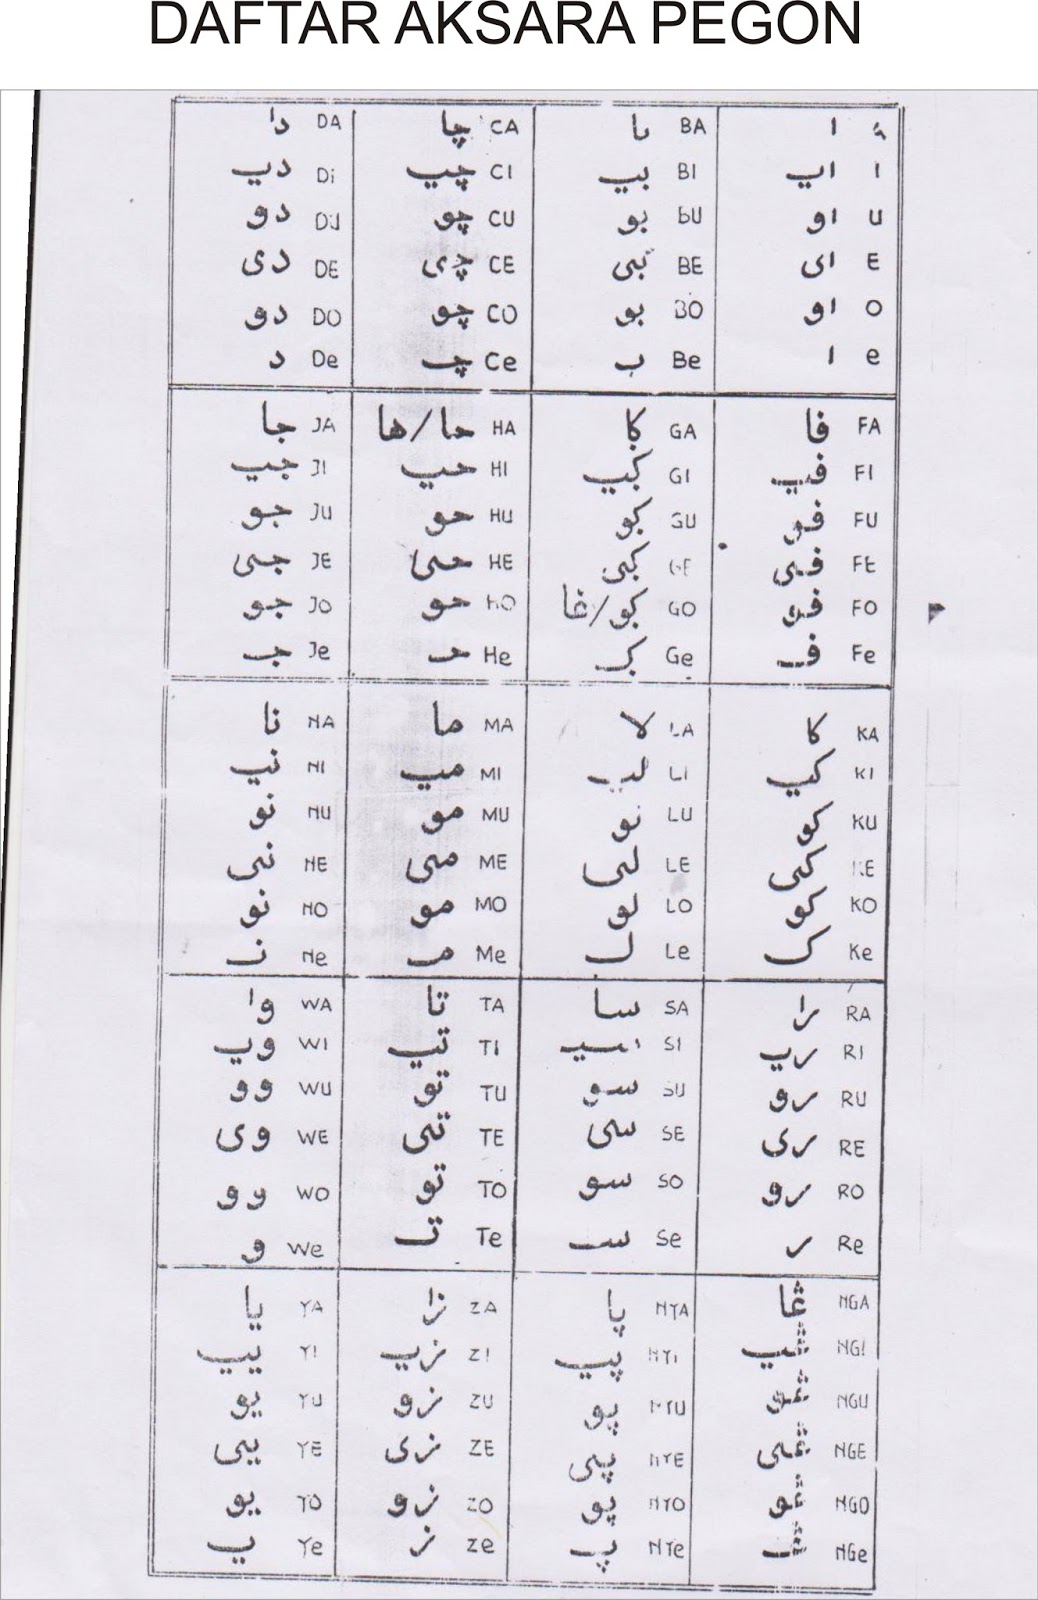 DAFTAR AKSARA PEGON
ا BA با CA چا DA دا
I اي BI بي CI چي Di دي
U او BU بو CU چو DU دو
E اى BE بى CE چى DE دى
O او BO بو CO چو DO دو
e ا Be ب Ce چ De د
FA فا GA ࢴا HA حا/ها JA جا
FI في GI ࢴي HI حي JI جي
FU فو GU ࢴو HU حو JU جو
FE فى ࢴى HE حى JE جى
FO فو GO ࢴو/غا HO حو JO جو
Fe ف Ge ࢴ He ح Je ج
KA كا LA لا MA ما NA نا
KI كي LI لي MI مي NI ني
KU كو LU نو MU مو NU نو
KE كى LE لى ME مى NE نى
KO كو LO لو MO مو NO نو
Ke ك Le ل Me م Ne ن
RA را SA سا TA تا WA وا
RI ري SI سي TI تي WI وي
RU رو SU سو TU تو WU وو
RE رى SE سى TE تى WE وى
RO رو SO سو TO تو WO وو
Re ر Se س Te ت We و
NGA ڠا NYA پا ZA زا YA يا
NGI ڠي NYI پي ZI زي YI يي
NGU ڠو NYU پو ZU زو YU يو
NGE ڠى NYE پى ZE زى YE يى
NGO ڠو NYO پو ZO زو YO يو
NGe ڠ NYe پ Ze ز Ye ي